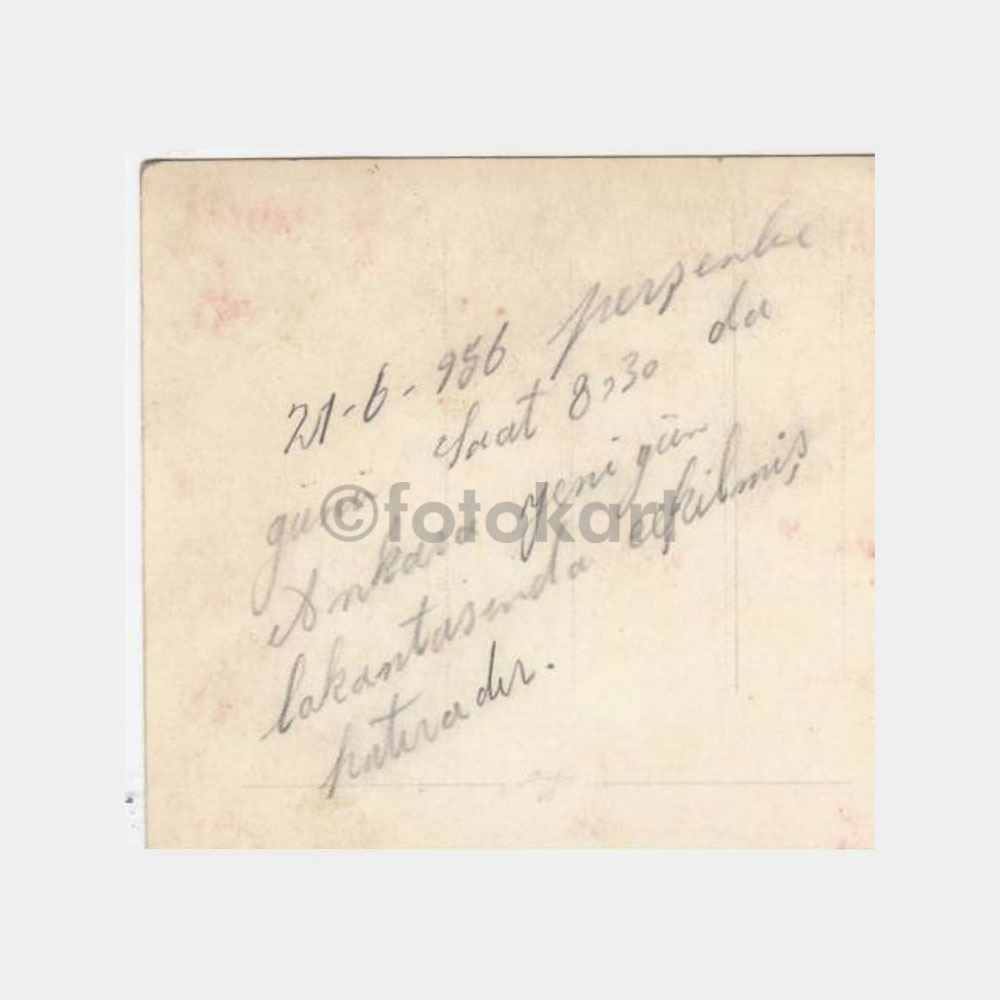 21-6-956 perşenbe
günü saat 8,30 da
Ankara yeni gün
lakantasenda çekilmiş
hatıradır.
©fotokart